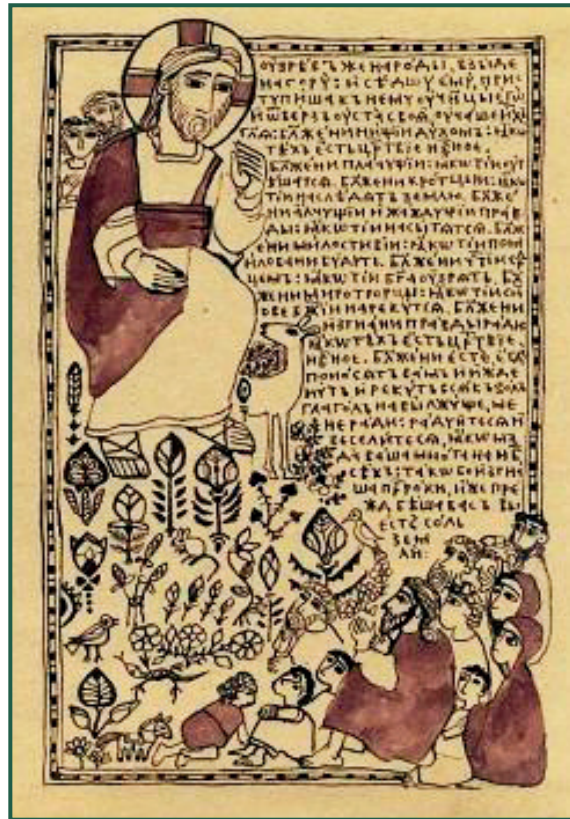 ОУЗРѢВЪ ЖЕ НАРОДЫ, ВЗЫДЕ
НА ГОРУ: И СѢДШУ ЕМУ, ПРИС
ТУПИША КЪ НЕМУ ОУЧН҃ЦЫ ЕГѠ
И ѾВЕРЗЪ ОУСТА СВОѦ, ОУЧАШЕ ИХЪ
ГЛ҃Ѧ: БЛ҃ЖЕНИ НИЩIИ ДУХОМЪ: ꙖКѠ
ТѢХЪ ЕСТЬ ЦР҃ТВIЕ НБ҃НОЕ.
БЛ҃ЖЕНИ ПЛАЧУЩIИ: ꙖКѠ ТIИ ОУТ
ѢШАТСѦ. БЛ҃ЖЕНИ КРОТЦЫИ: ꙖКѠ
ТIИ НАСЛѢДѦТЪ ЗЕМЛЮ. БЛ҃ЖЕ
НИ АЛЧУЩIИ И ЖАЖДУЩIИ ПРАВ
ДЫ: ꙖКѠ ТIИ НАСЫТѦТСѦ. БЛ҃Ж
ЕНИ МИЛОСТИВIИ: ꙖКѠ ТIИ ПОМ
ИЛОВАНИ БУДУТЪ. БЛ҃ЖЕНИ ЧТ҃IИ СЕР
ЦЕМЪ: ꙖКѠ ТIИ БГ҃А ОУЗРѦТЪ. БЛ҃
ЖЕНИ МИРОТВОРЦЫ: ꙖКѠ ТIИ СЫ
НОВЕ БЖ҃IИ НАРЕКУТСѦ. БЛ҃ЖЕНИ
ИЗГНАНИ ПРАВДЫ РАДИ
ꙖКѠ ТѢХЪ ЕСТЬ ЦР҃ТВIЕ,
НБ҃НОЕ. БЛ҃ЖЕНИ ЕСТЕ, ЕГДА
ПОНОСѦТЪ ВАМЪ И ИЖДЕ
НУТЪ И РЕКУТЪ ВСѦКЪ ЗОЛЪ
ГЛАГОЛЪ НА ВЫ ЛЖУЩЕ, МЕ
НЕ РАДИ: РАДУЙТЕСѦ И
ВЕСЕЛИТЕСѦ, ꙖКѠ МЗ
ДА ВАША МНОГА НА НБ҃
СѢХЪ: ТАКѠ БО ИЗГНА
ША ПР҃РОКИ, ИЖЕ ПРЕ
ЖДА БѢША ВАСЪ ВЫ
ЕСТЕ СОЛЬ
ЗЕМ
ЛИ: